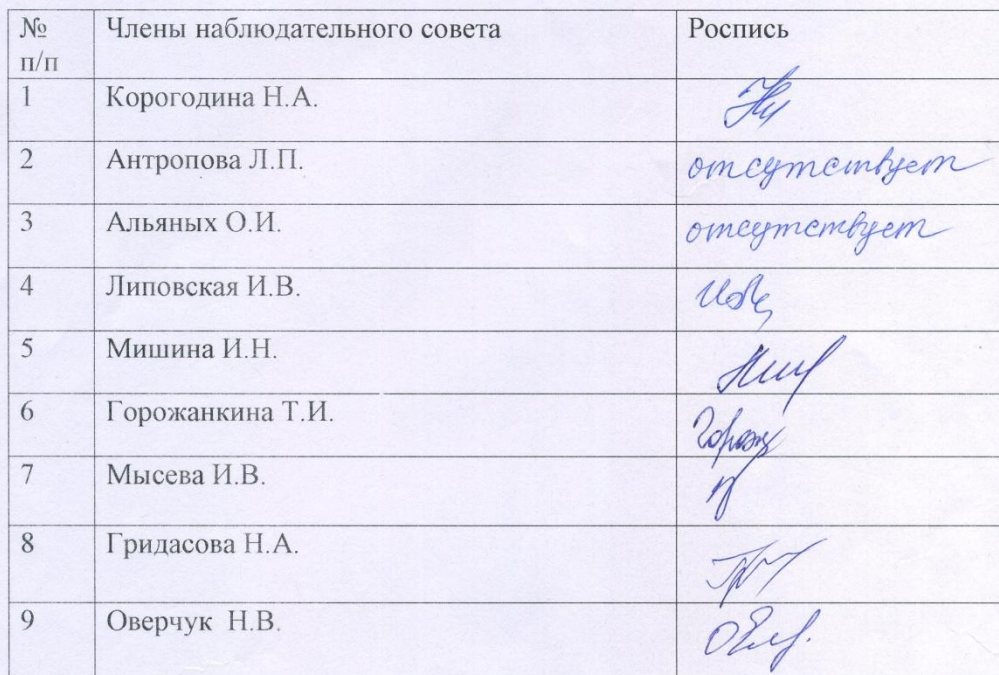 № Члены наблюдательного совета Роспись
п/п
1 Корогодина Н.А.
2 Антропова Л.П. отсутствует
3 Альяных О.И. отсутствует
4 Липовская И.В.
5 Мишина И.Н.
6 Горожанкина Т.И.
7 Мысева И.В.
8 Гридасова Н.А.
9 Оверчук Н.В.